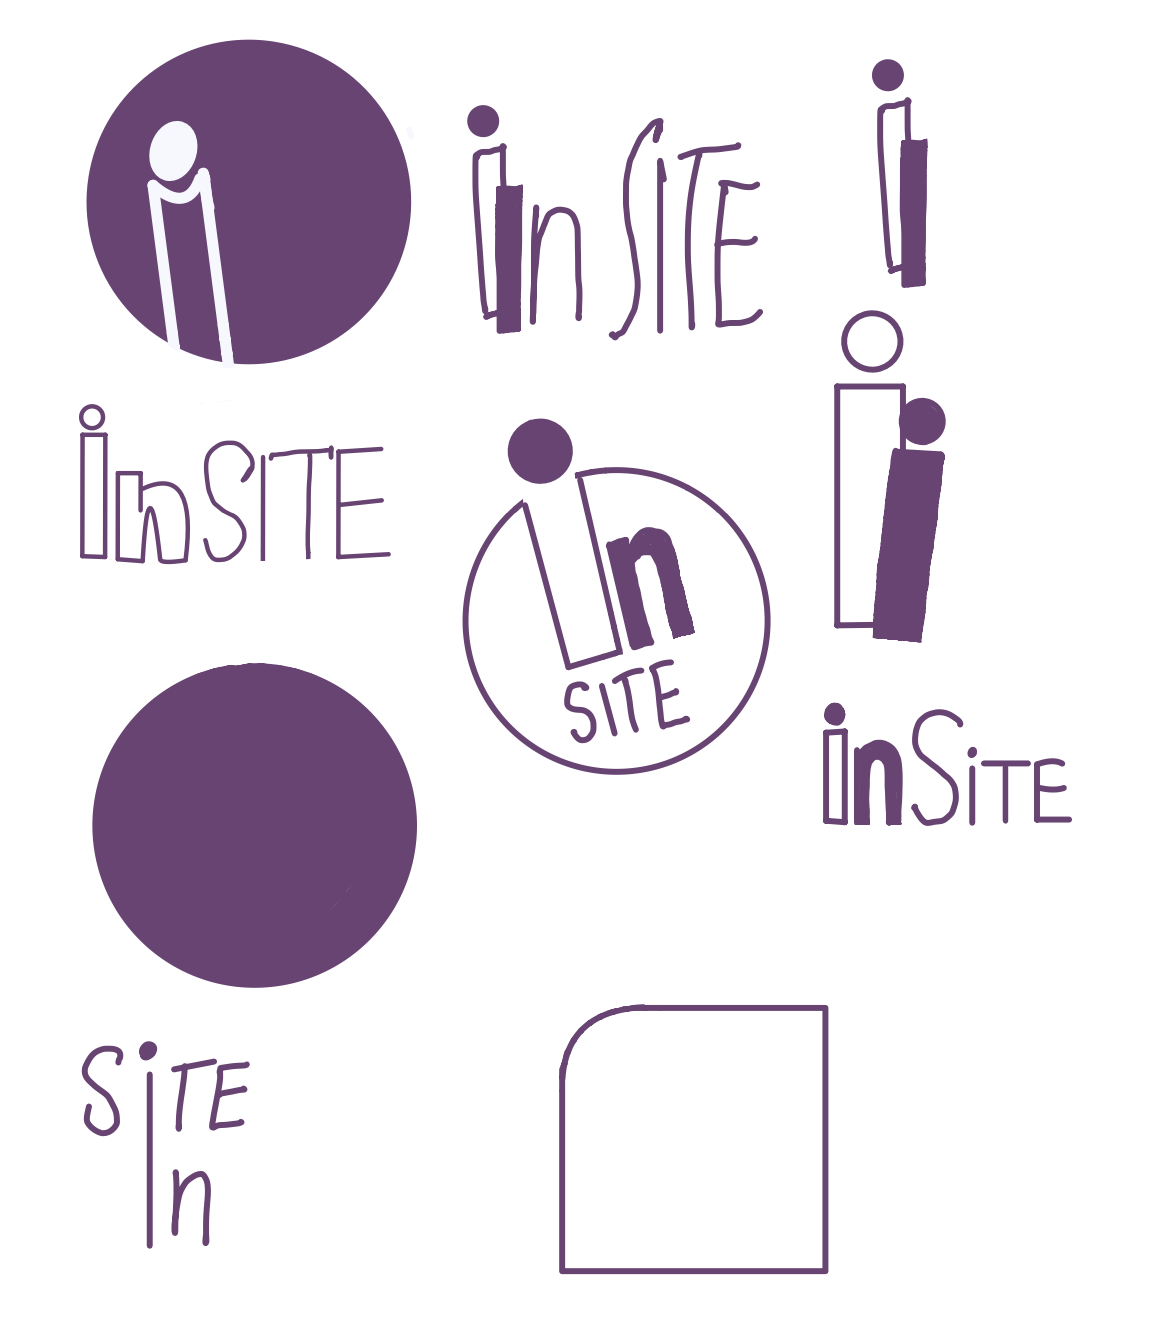 i
inSITE
i
inSITE
in
SITE
i
inSiTE
SiTE
in